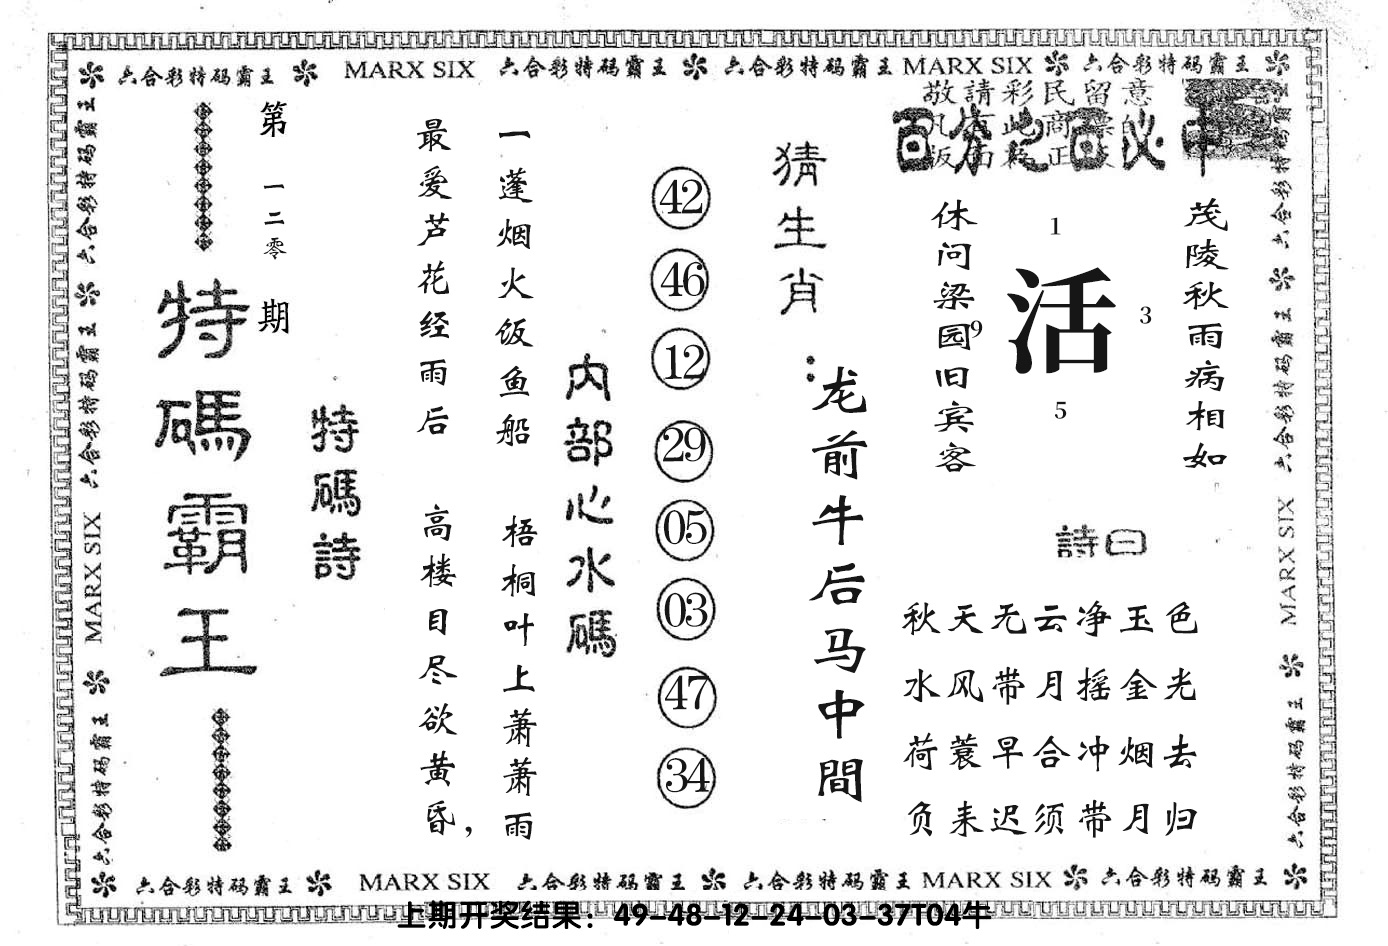 六合彩特码霸王 MARX SIX 六合彩特码霸王 六合彩特码霸王 MARX SIX 六合彩特码霸王
敬請彩民留意
百分之百必中
茂陵秋雨病相如
休问梁园旧宾客
1
9
活
3
5
詩曰
秋天无云净玉色
水风带月摇金光
荷蓑早合冲烟去
负耒迟须带月归
猜生肖：
龙前牛后马中間
42
46
12
29
05
03
47
34
内部心水碼
一蓬烟火饭鱼船 梧桐叶上萧萧雨
最爱芦花经雨后 高楼目尽欲黄昏，
特碼詩
第一二零期
特碼霸王
六合彩特码霸王 六合彩特码霸王 MARX SIX 六合彩特码霸王
六合彩特码霸王 六合彩特码霸王 MARX SIX 六合彩特码霸王
六合彩特码霸王 MARX SIX 六合彩特码霸王 六合彩特码霸王 MARX SIX 六合彩特码霸王
上期开奖结果：49-48-12-24-03-37T04牛